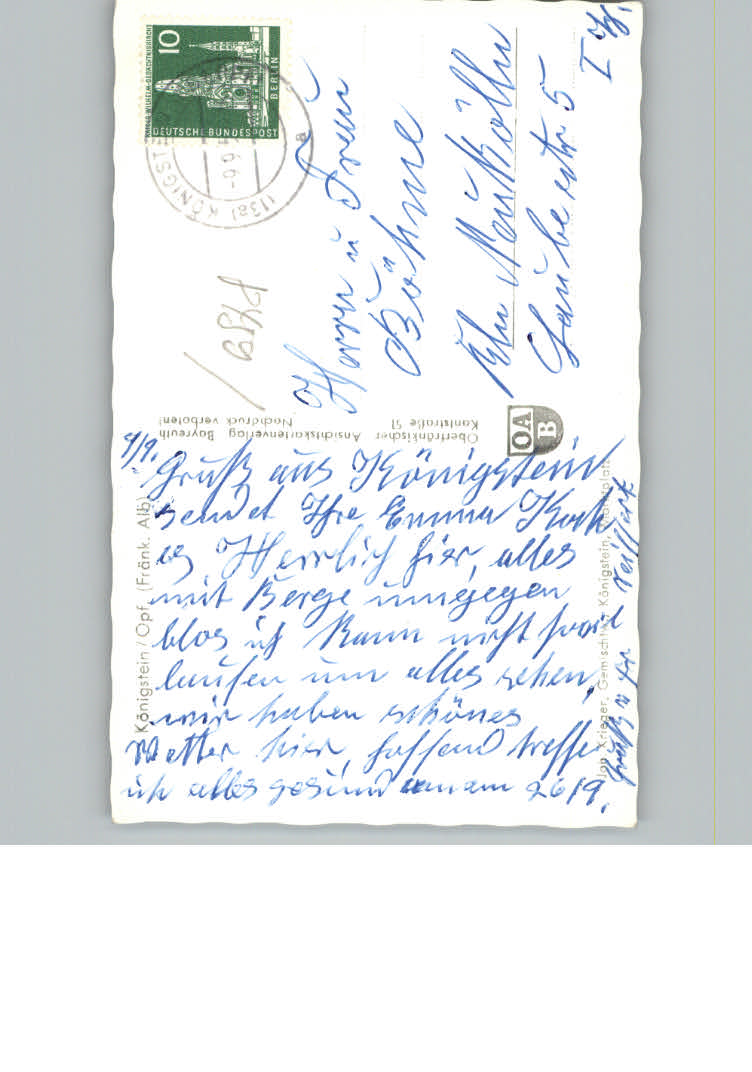 9/9.
Gruß aus Königstein
sendet Ihre Emma Koch
es Herrlich hier, alles
mit Berge umgegen
blos ich kann nicht soviel
laufen um alles sehen,
wir haben schönes
Wetter hier, hoffend treffe
ich alles gesund an am 26/9.
Gruß u
Herrn u Frau
Böhme
Bln Neukölln
Laubestr 5
I
10
KAISER-WILHELM-GEDÄCHTNISKIRCHE
DEUTSCHE BUNDESPOST
BERLIN
(13a) KÖNIGST
a
Königstein/Opf. (Fränk. Alb)
Oberfränkischer Ansichtskartenverlag Bayreuth
Kantstraße 51 Nachdruck verboten!
OA
B
Krieger, Gemischtw. Königstein, Marktplatz